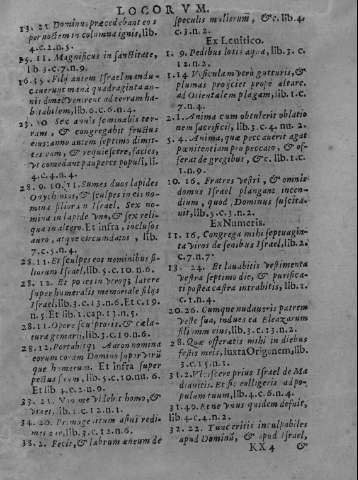 LOCORVM.
13. 21. Dominus præcedebat eos
per noctem in columna ignis, lib.
4. c.2.n.5.
15. 11. Magnificus in sanctitate,
lib.3.c.7.n.9.
16. 15. Filij autem Israel mandu-
cauerunt manna quadraginta an-
nis donec venirent ad terram ha-
bitabilem, lib.6.c.6.n.4.
23. 10. Sex annis seminabis ter-
ram, & congregabis fructus
eius: anno autem septimo dimit-
tes eam, & requiescere facies,
vt comedant pauperes populi, li.
4.c.4.n.4.
28. 9. 10. 11. Sumes duos lapides
Onychinos, & sculpes in eis no-
mina filiorum Israel. Sex no-
mina in lapide vno, & sex reli-
qua in altero. Et infra, inclusos
auro, atque circumdatos, lib.
7.c.5.n.4.
28. 11. Et sculpes eos nominibus fi-
liorum Israel, lib.5.c.10.n.6.
28. 12. Et pones in vtroque latere
superhumeralis memoriale filijs
Israel, lib.3.c.13.n.6. Et c.19.
n.5. Et lib.1.cap.13.n.5.
28. 11. Opere sculptoris, & cæla-
tura gemmarij, lib.3.c.10.n.6.
28. 12. Portabitque Aaron nomina
eorum coram Domino super vtrum-
que humerum. Et infra super
pectus suum, lib.5.c.10.nu.6.
Et lib 4.c.2.n.9.
33. 21. Non me videbit homo, &
viuet, lib.1.c.12.n.1.
34. 20. Primogenitum asini redi-
mes oue, lib.3.c.13.n.6.
38. 2. Fecit, & labrum æneum de
speculis mulierum, &c. lib.4.
c.3.n.2.
Ex Leuitico.
1. 9. Pedibus lotis aqua, lib.3.c.
12.n.2.
1. 14. Vesiculam verò gutturis, &
plumas projciet propè altare,
ad Orientalem plagam, lib.1.c.
7.n.4.
2. 1. Anima cum obtulerit oblatio
nem sacrificij, lib.3.c.4. nu.2.
5. 4. Anima, quæ peccauerit agat
pœnitentiam pro peccato, & of-
ferat de gregibus, &c. lib.1.c.
1.n.9.
10. 16. Fratres vestri, & omnis
domus Israel plangant incen-
dium, quod Dominus suscita-
uit, lib.5.c.3.n.2.
Ex Numeris.
11. 16. Congrega mihi septuagin-
ta viros de senibus Israel, lib.2.
c.7.n.7.
13. 24. Et lauabitis vestimenta
vestra septimo die, & purificati
postea castra intrabitis, lib.1.
c.1.n.4.
20. 26. Cumque nudaueris patrem
veste sua, indues ea Eleazarum
filium eius, lib.3.c.13.n.2.
28. Quæ offeratis mihi in diebus
festis meis, iuxta Origenem, lib.
3.c.15.n.1.
31. 2. Vlciscere prius Israel de Ma
dianitis. Et sic colligeris ad po-
pulum tuum, lib.4.c.6.n.4.
31. 49. Et ne vnus quidem defuit,
lib.4.c.4.n.2.
32. 22. Tunc eritis inculpabiles
apud Dominũ, & apud Israel,
KX 4 &